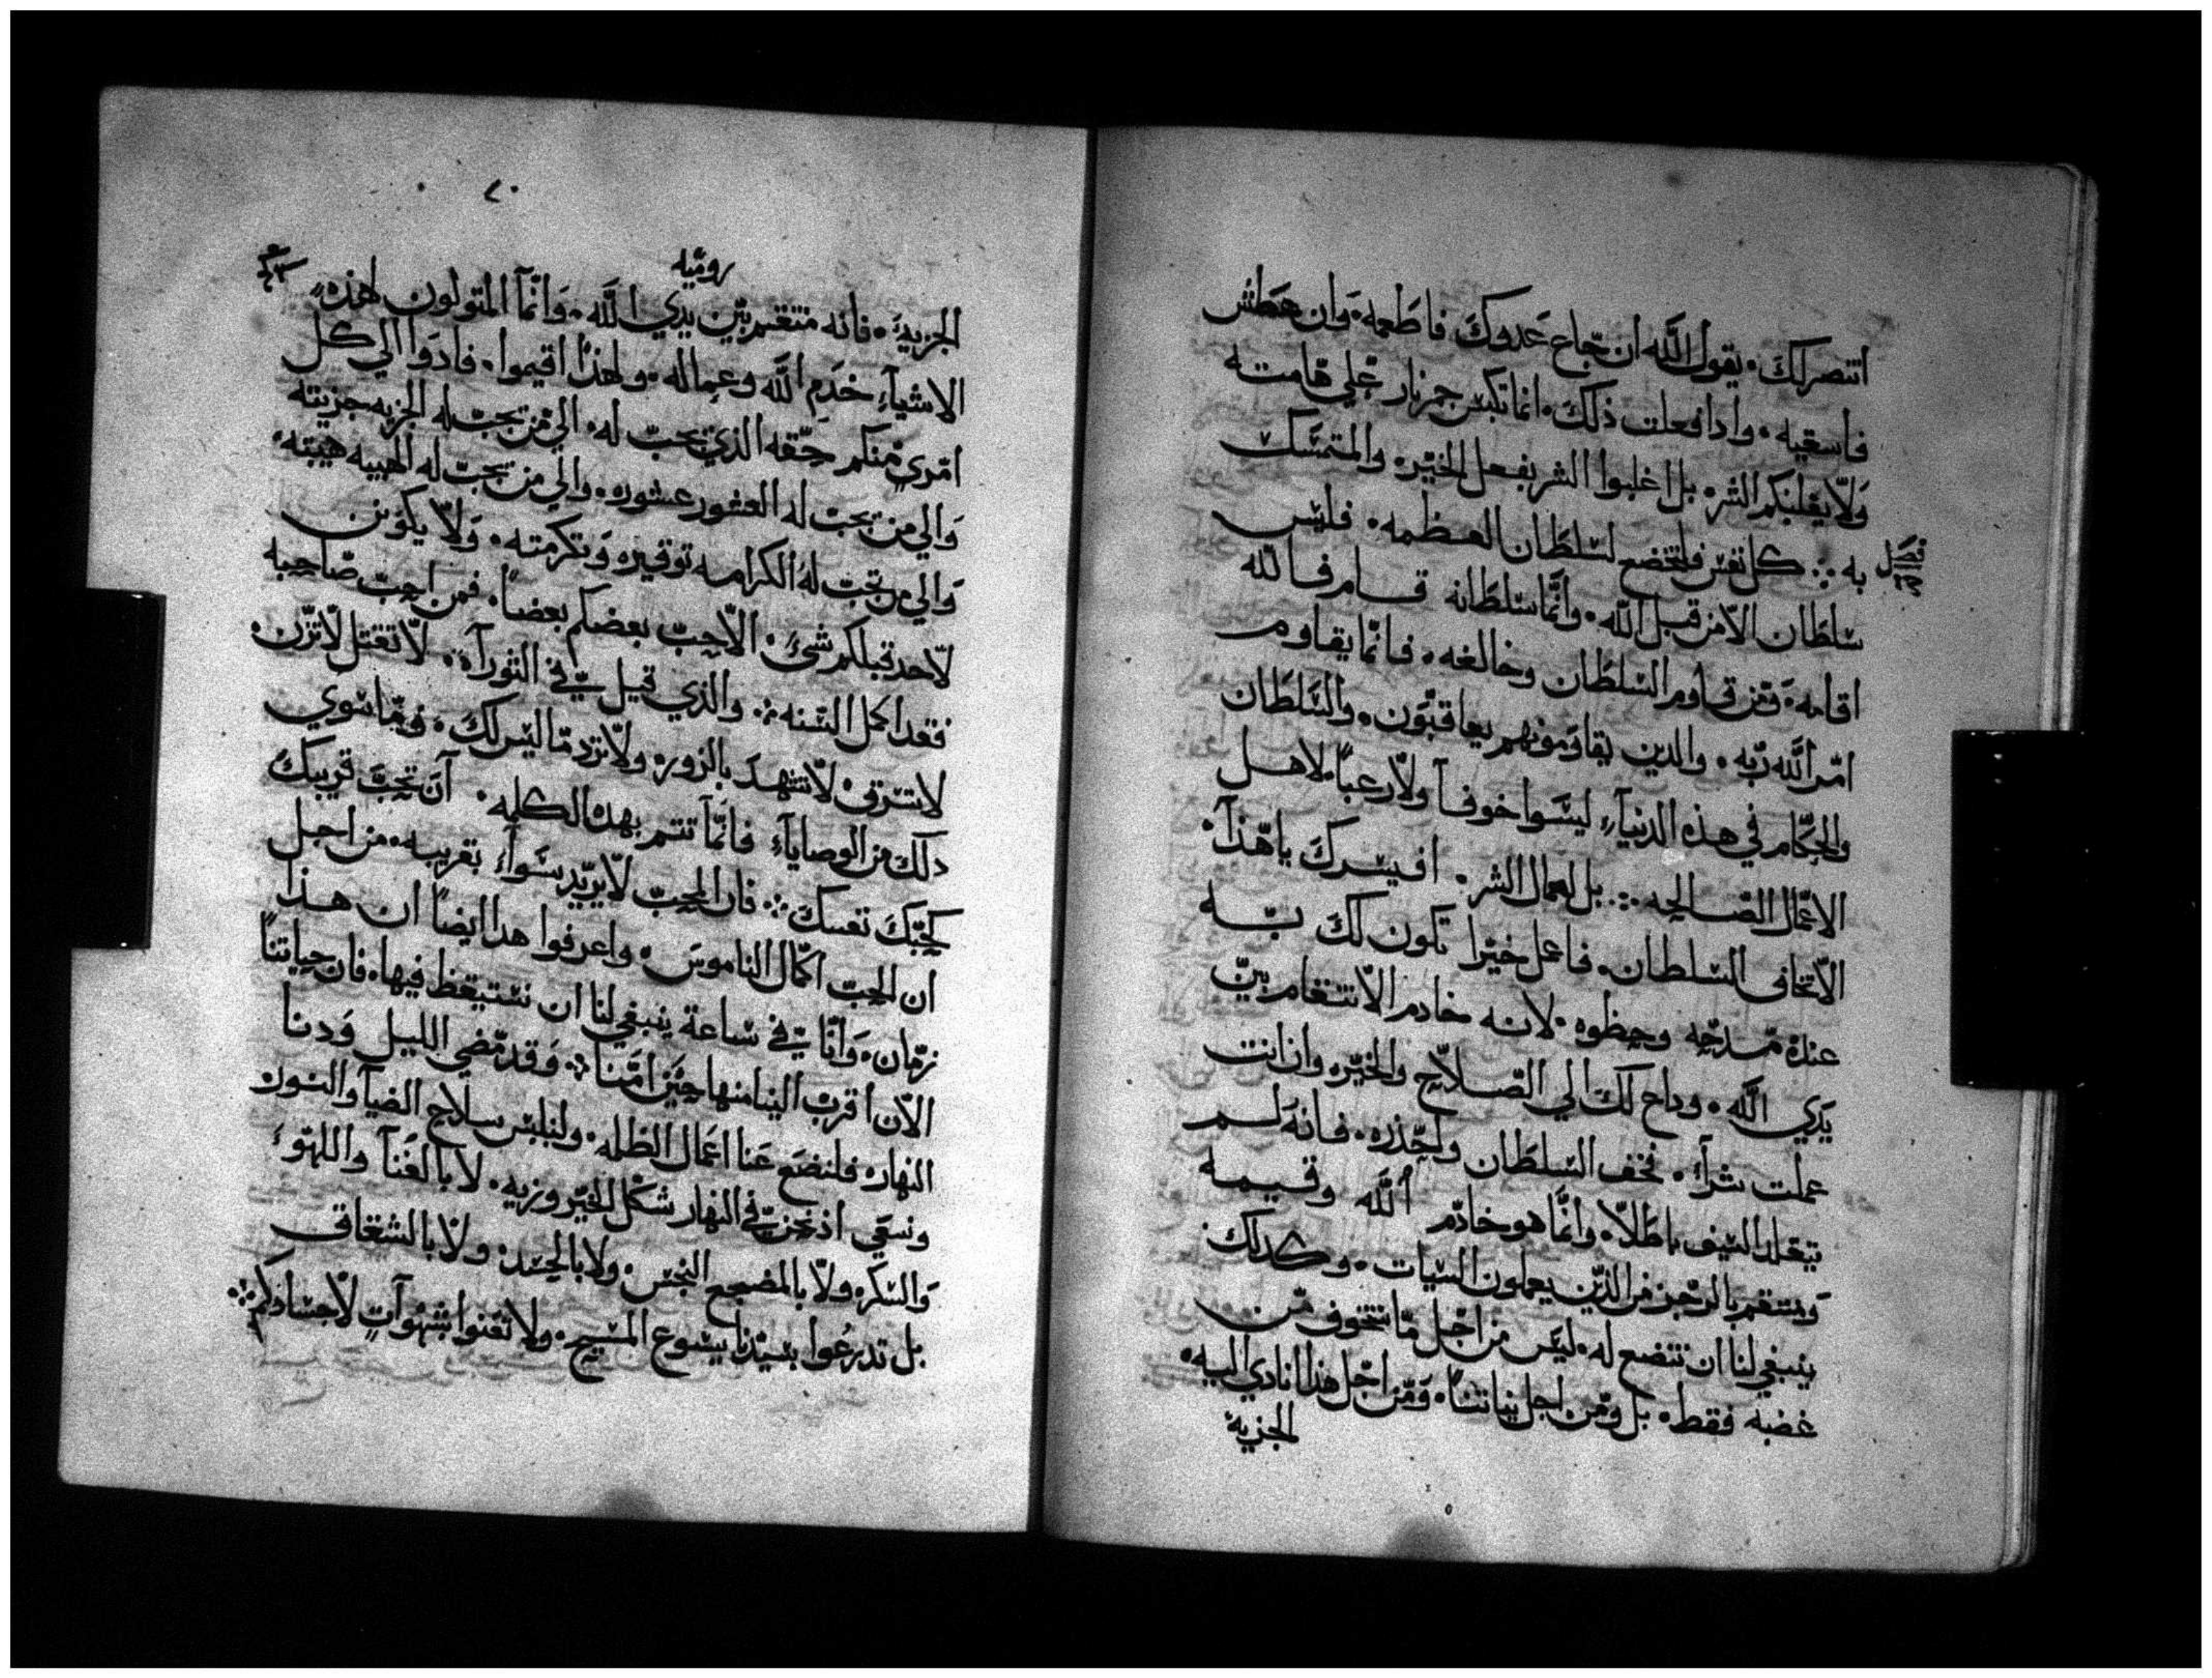 انتصر لك. يقول الله ان جاع عدوك فاطعمه. وان عطش
فاسقيه. وادا فعلت ذلك. انما تكبس جمر نار علي هامته
ولا يغلبنكم الشر. بل اغلبوا الشر بفعل الخير. والمتمسك
فصل
به ∴ كل نفس فلتخضع لسلطان العظمه. فليس
سلطان الا من قبل الله. وانما سلطانه قام فالله
اقامه. ومن قاوم السلطان وخالفه. فانما يقاوم
امر الله ربه. والدين يقاومونهم يعاقبون. والسلطان
والحكام في هذه الدنيا، ليسوا خوفا ولا رعبا. لاهل
الاعمال الصالحه ∴ بل لعمال الشر. افيسرك يا هذا.
الا تخاف السلطان. فاعمل خيرا تكون لك به
عنده ممدحه وحظوه. لانه خادم الانتقام بين
يدي الله. وداع لك الي الصلاح والخير. وان انت
عملت شرا. فخف السلطان واحذره. فانه لم
يتقلد السيف باطلا. وانما هو خادم الله وقيمه
ومنتقم بالرجز من الذين يعملون السيات. وكدلك
ينبغي لنا ان نتضع له. ليس من اجل ما نتخوف من
غضبه فقط. بل ومن اجل نياتنا. ومن اجل هذا نادي اليه.
الجزية
٧٠
روميه
الجزية. فانه منتقم بين يدي الله. وانما المتولون لهذه
الاشياء خدم الله وعماله. ولهذا اقيموا. فادوا الي كل
امري منكم حقه الذي يجب له. الي من تجب له الجزيه جزيته
والي من تجب له العشور عشوره. والي من تجب له الهيبه هيبته.
والي من تجب له الكرامه توقيره وتكرمته. ولا يكونن
لاحد قبلكم شئ. الا حب بعضكم بعضا. فمن احب صاحبه
فقد اكمل السنه ∴ والذي قيل في التوراة. لا تقتل لا تزن.
لا تسرق. لا تشهد بالزور. ولا ترد ما ليس لك. وما سوي
دلك من الوصايا، فانما تتم بهده الكلمه. ان تحب قريبك
كحبك نفسك ∴ فان المحب لا يريد سوا، بقريبه. من اجل
ان الحب اكمال الناموس. واعرفوا هدا ايضا ان هذا
زمان. وانا في ساعة ينبغي لنا ان نستيقظ فيها. فان حياتنا
الان اقرب الينا منها حين امنا ∴ وقد مضي الليل ودنا
النهار. فلنضع عنا اعمال الظلمه. ولنلبس سلاح الضيا والنور.
ونسعي اذ نحن في النهار شكل الخير وزيه. لا بالغنا واللهو.
والسكر. ولا بالمضجع النجس. ولا بالحسد. ولا بالشقاق
بل تدرعوا بسيدنا يسوع المسيح. ولا تعنوا بشهوات لاجسادكم ∴